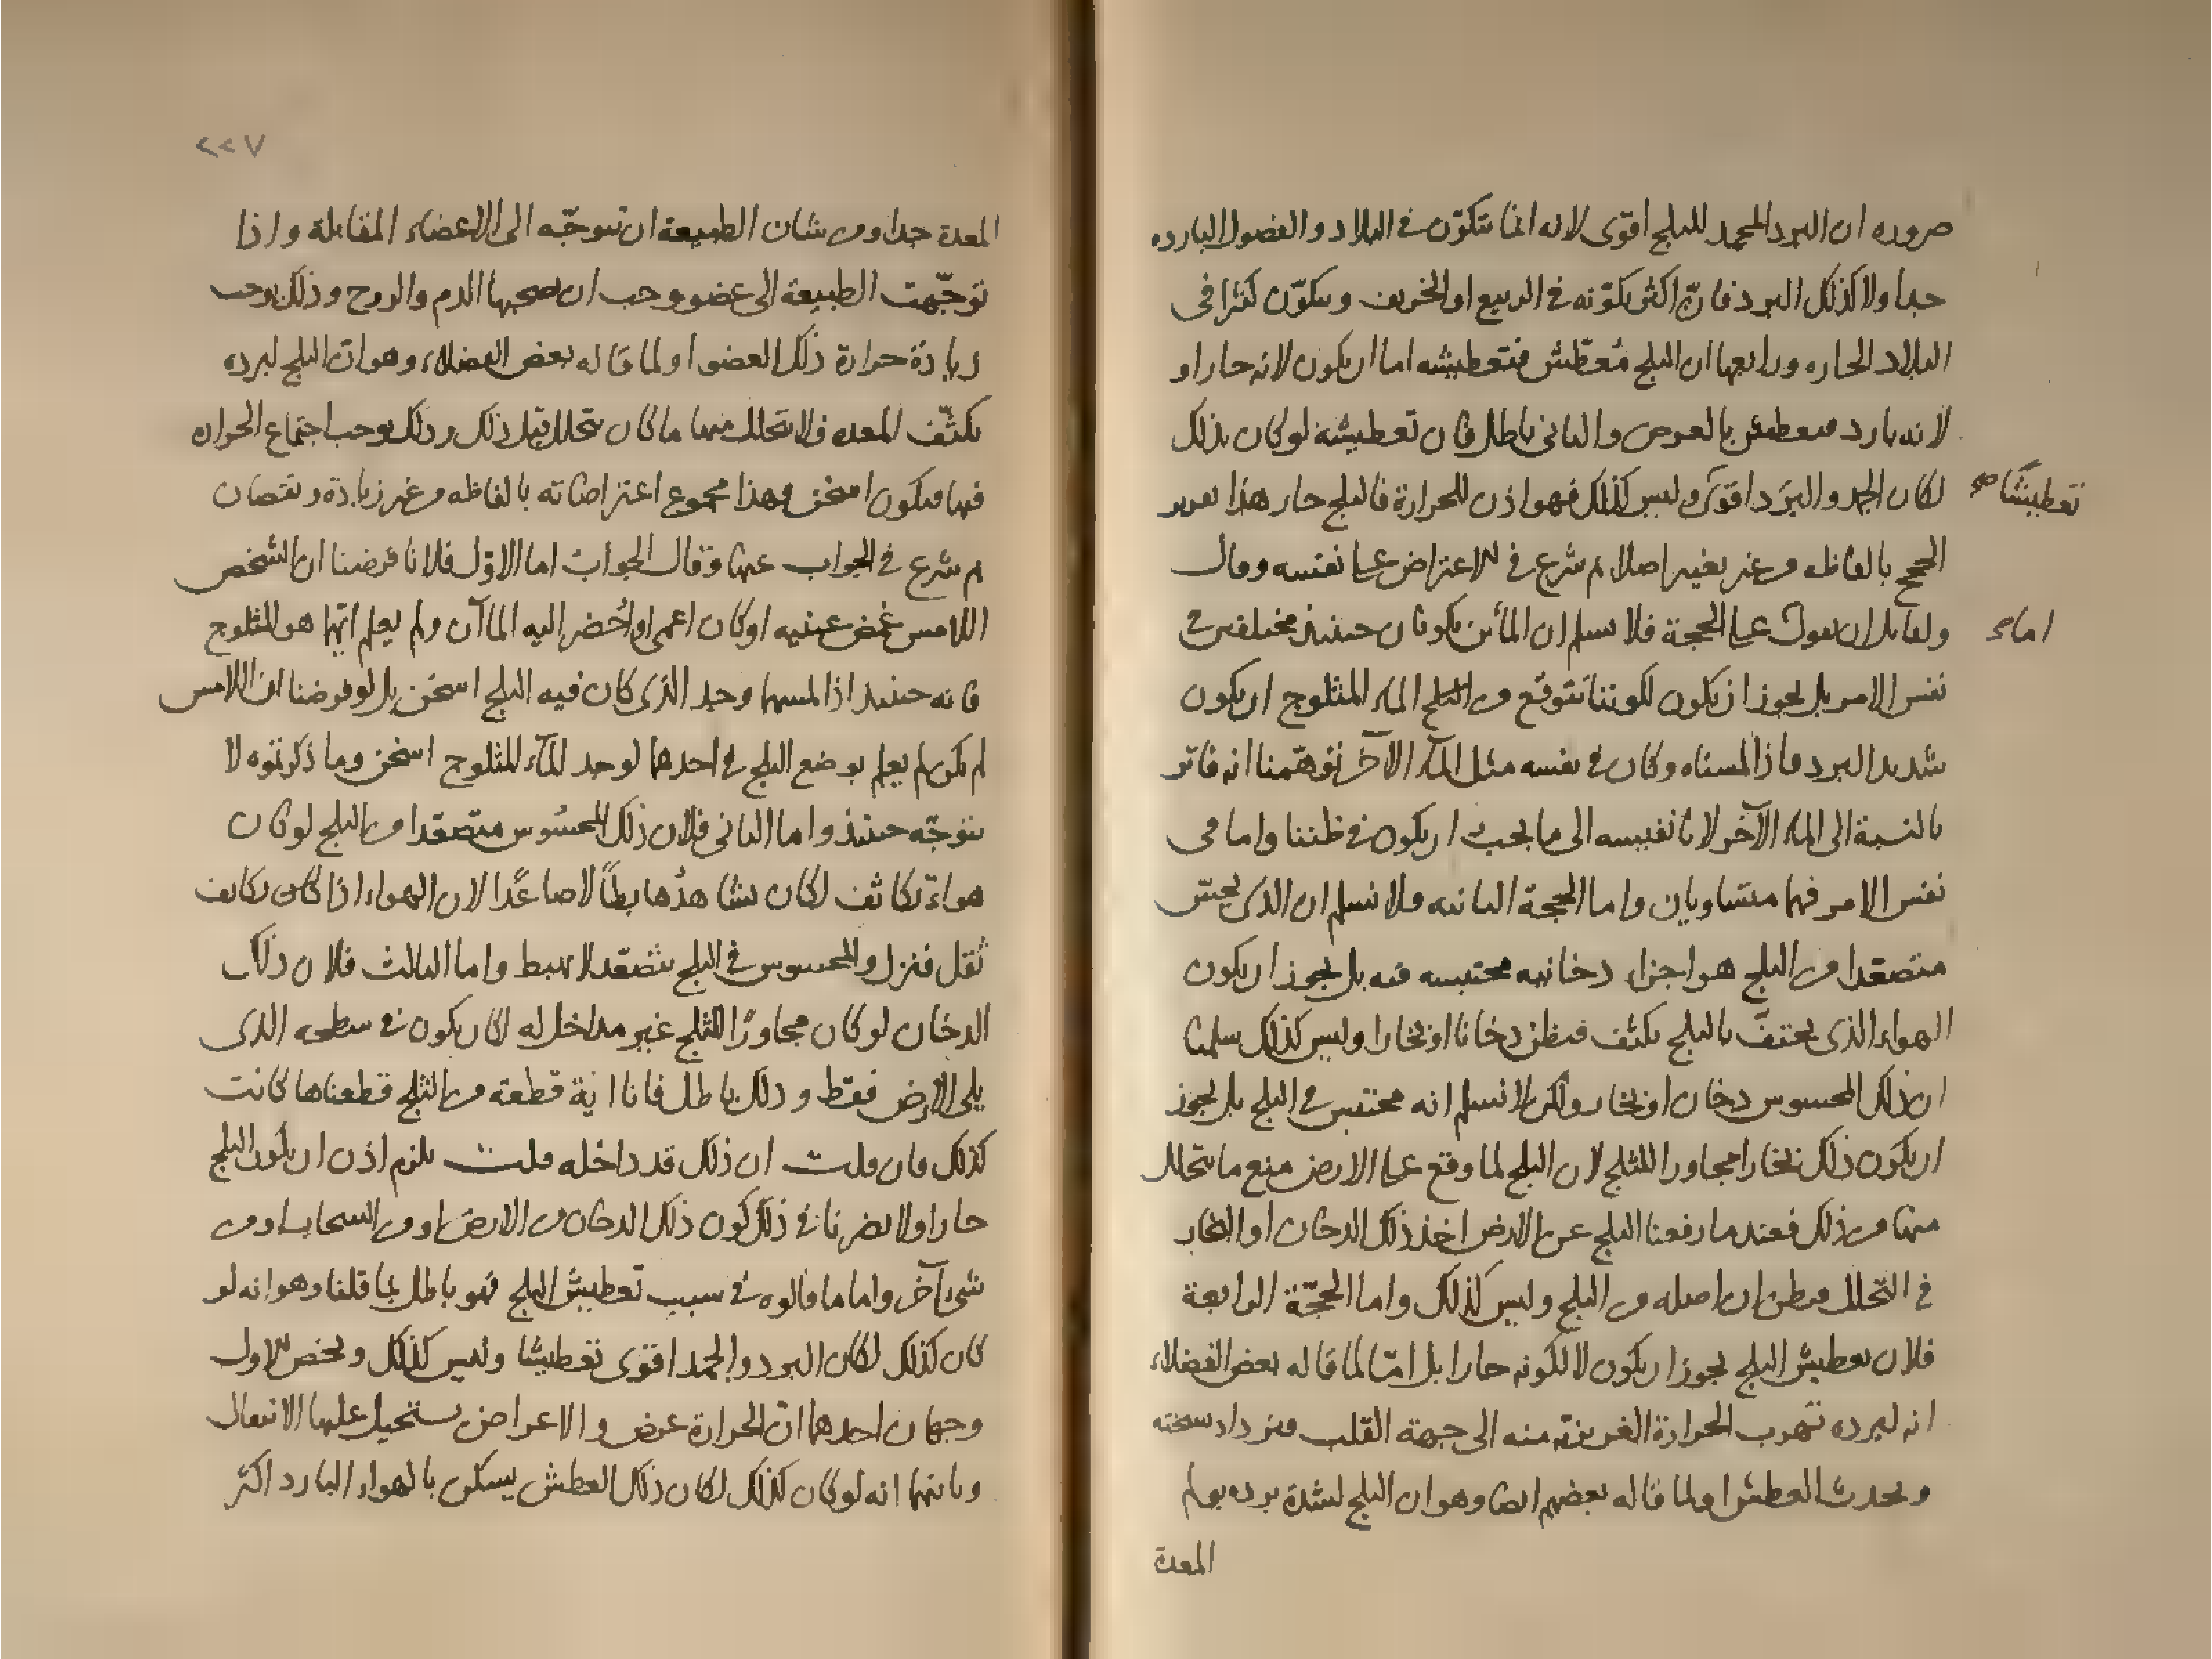 ضروره ان البرد المجمد للثلج اقوى لانه انما يتكوّن في البلاد والفصول البارده
جدا ولا كذلك البرد فانّ اكثر تكوّنه في الربيع او الخريف ويتكوّن كثيرا في
البلاد الحاره ورابعها ان الثلج مُعطّش فتعطيشه اما ان يكون لانه حار او
لانه بارد فيعطش بالعرض والثانى باطل فان تعطيشه لو كان بذلك
لكان الجمد والبَرَد اقوى وليس كذلك فهو اذن للحرارة فالثلج حار هذا تقرير
تعطيشًا صح
الحجج بالفاظه من غير تغيير اصلا ثم شرع في الاعتراض على نفسه وقال
ولقائل ان يقول على الحجة فلا نسلم ان المائين يكونان حينئذ مختلفين في
اما صح
نفس الامر بل يجوز ان يكون لكوننا نتوقع من الثلج الماء المثلوج ان يكون
شديد البرد فاذا لمسناه وكان في نفسه مثل الماء الآخر توهّمنا انه فاتر
بالنسبة الى الماء الآخر لانا نقيسه الى ما يجب ان يكون في ظننا واما في
نفس الامر فهما متساويان واما الحجة الثانيه فلا نسلم ان الذى يحسّ
متصعدا من الثلج هو اجزاء دخانيه محتبسه فيه بل يجوز ان يكون
الهواء الذى يحتفّ بالثلج يكثف فيظن دخانا او بخارا وليس كذلك سلمنا
ان ذلك المحسوس دخان او بخار ولكن لا نسلم انه محتبس في الثلج بل يجوز
ان يكون ذلك بخارا مجاورا للثلج لان الثلج لما وقع على الارض منع ما يتحلل
منها من ذلك فعندما رفعنا الثلج عن الارض اخذ ذلك الدخان او البخار
في التحلل فيظن ان اصله من الثلج وليس كذلك واما الحجّة الرابعة
فلان تعطيش الثلج يجوز ان يكون لا لكونه حارا بل امّا لما قاله بعض الفضلاء
انه لبرده تهرب الحرارة الغريزيّة منه الى جهة القلب فيزداد سخنته
ويحدث العطش او لما قاله بعضهم ايضا وهو ان الثلج لشدة برده يولم
المعدة
٢٢٧
المعدة جدا ومن شان الطبيعة ان تتوجّه الى الاعضاء المقابلة واذا
توجّهت الطبيعة الى عضو وجب ان يصحبها الدم والروح وذلك يوجب
زيادة حرارة ذلك العضو او لما قاله بعض الفضلاء وهو ان الثلج لبرده
يكثّف المعده فلا يتحلل منها ما كان يتحلل قبل ذلك وذلك يوجب اجتماع الحراره
فيها فيكون اسخن وهذا مجموع اعتراضاته بالفاظه من غير زيادة ونقصان
ثم شرع في الجواب عنها وقال الجواب اما الاوّل فلانا فرضنا ان الشخص
اللامس غمض عينيه او كان اعمى او أُحضر اليه الماآن ولم يعلم ايّهما هو المثلوج
فانه حينئذ اذا لمسهما وجد الذى كان فيه الثلج اسخن بل لو فرضنا ان اللامس
لم يكن لم يعلم بوضع الثلج في احدهما لوجد الماء المثلوج اسخن وما ذكرتموه لا
يتوجّه حينئذ واما الثانى فلان ذلك المحسوس متصعدا من الثلج لو كان
هواءً تكاثف لكان نشاهدُ هابطًا لا صاعدًا لان الهواء اذا كان تكاثف
ثقل فنزل والمحسوس في الثلج يتصعد لا يهبط واما الثالث فلان ذلك
الدخان لو كان مجاورًا للثلج غير مداخل له لكان يكون في سطحه الذى
يلى الارض فقط وذلك باطل فانا اية قطعة من الثلج قطعناها كانت
كذلك فان قلت ان ذلك قد داخله قلت يلزم اذن ان يكون الثلج
حارا ولا يضرنا في ذلك كون ذلك الدخان من الارض او من السحاب او من
شى آخر واما ما قالوه في سبب تعطيش الثلج فهو باطل بما قلنا وهو انه لو
كان كذلك لكان البرد والجمد اقوى تعطيشا وليس كذلك ويخص الاول
وجهان احدهما انّ الحرارة عرض والاعراض يستحيل عليها الانتقال
وثانيهما انه لو كان كذلك لكان ذلك العطش يسكن بالهواء البارد اكثر